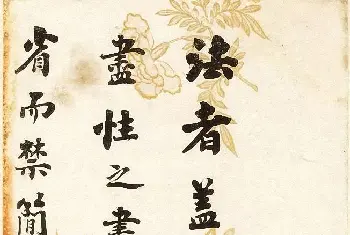 法者蓋
盡性之書
省而禁簡